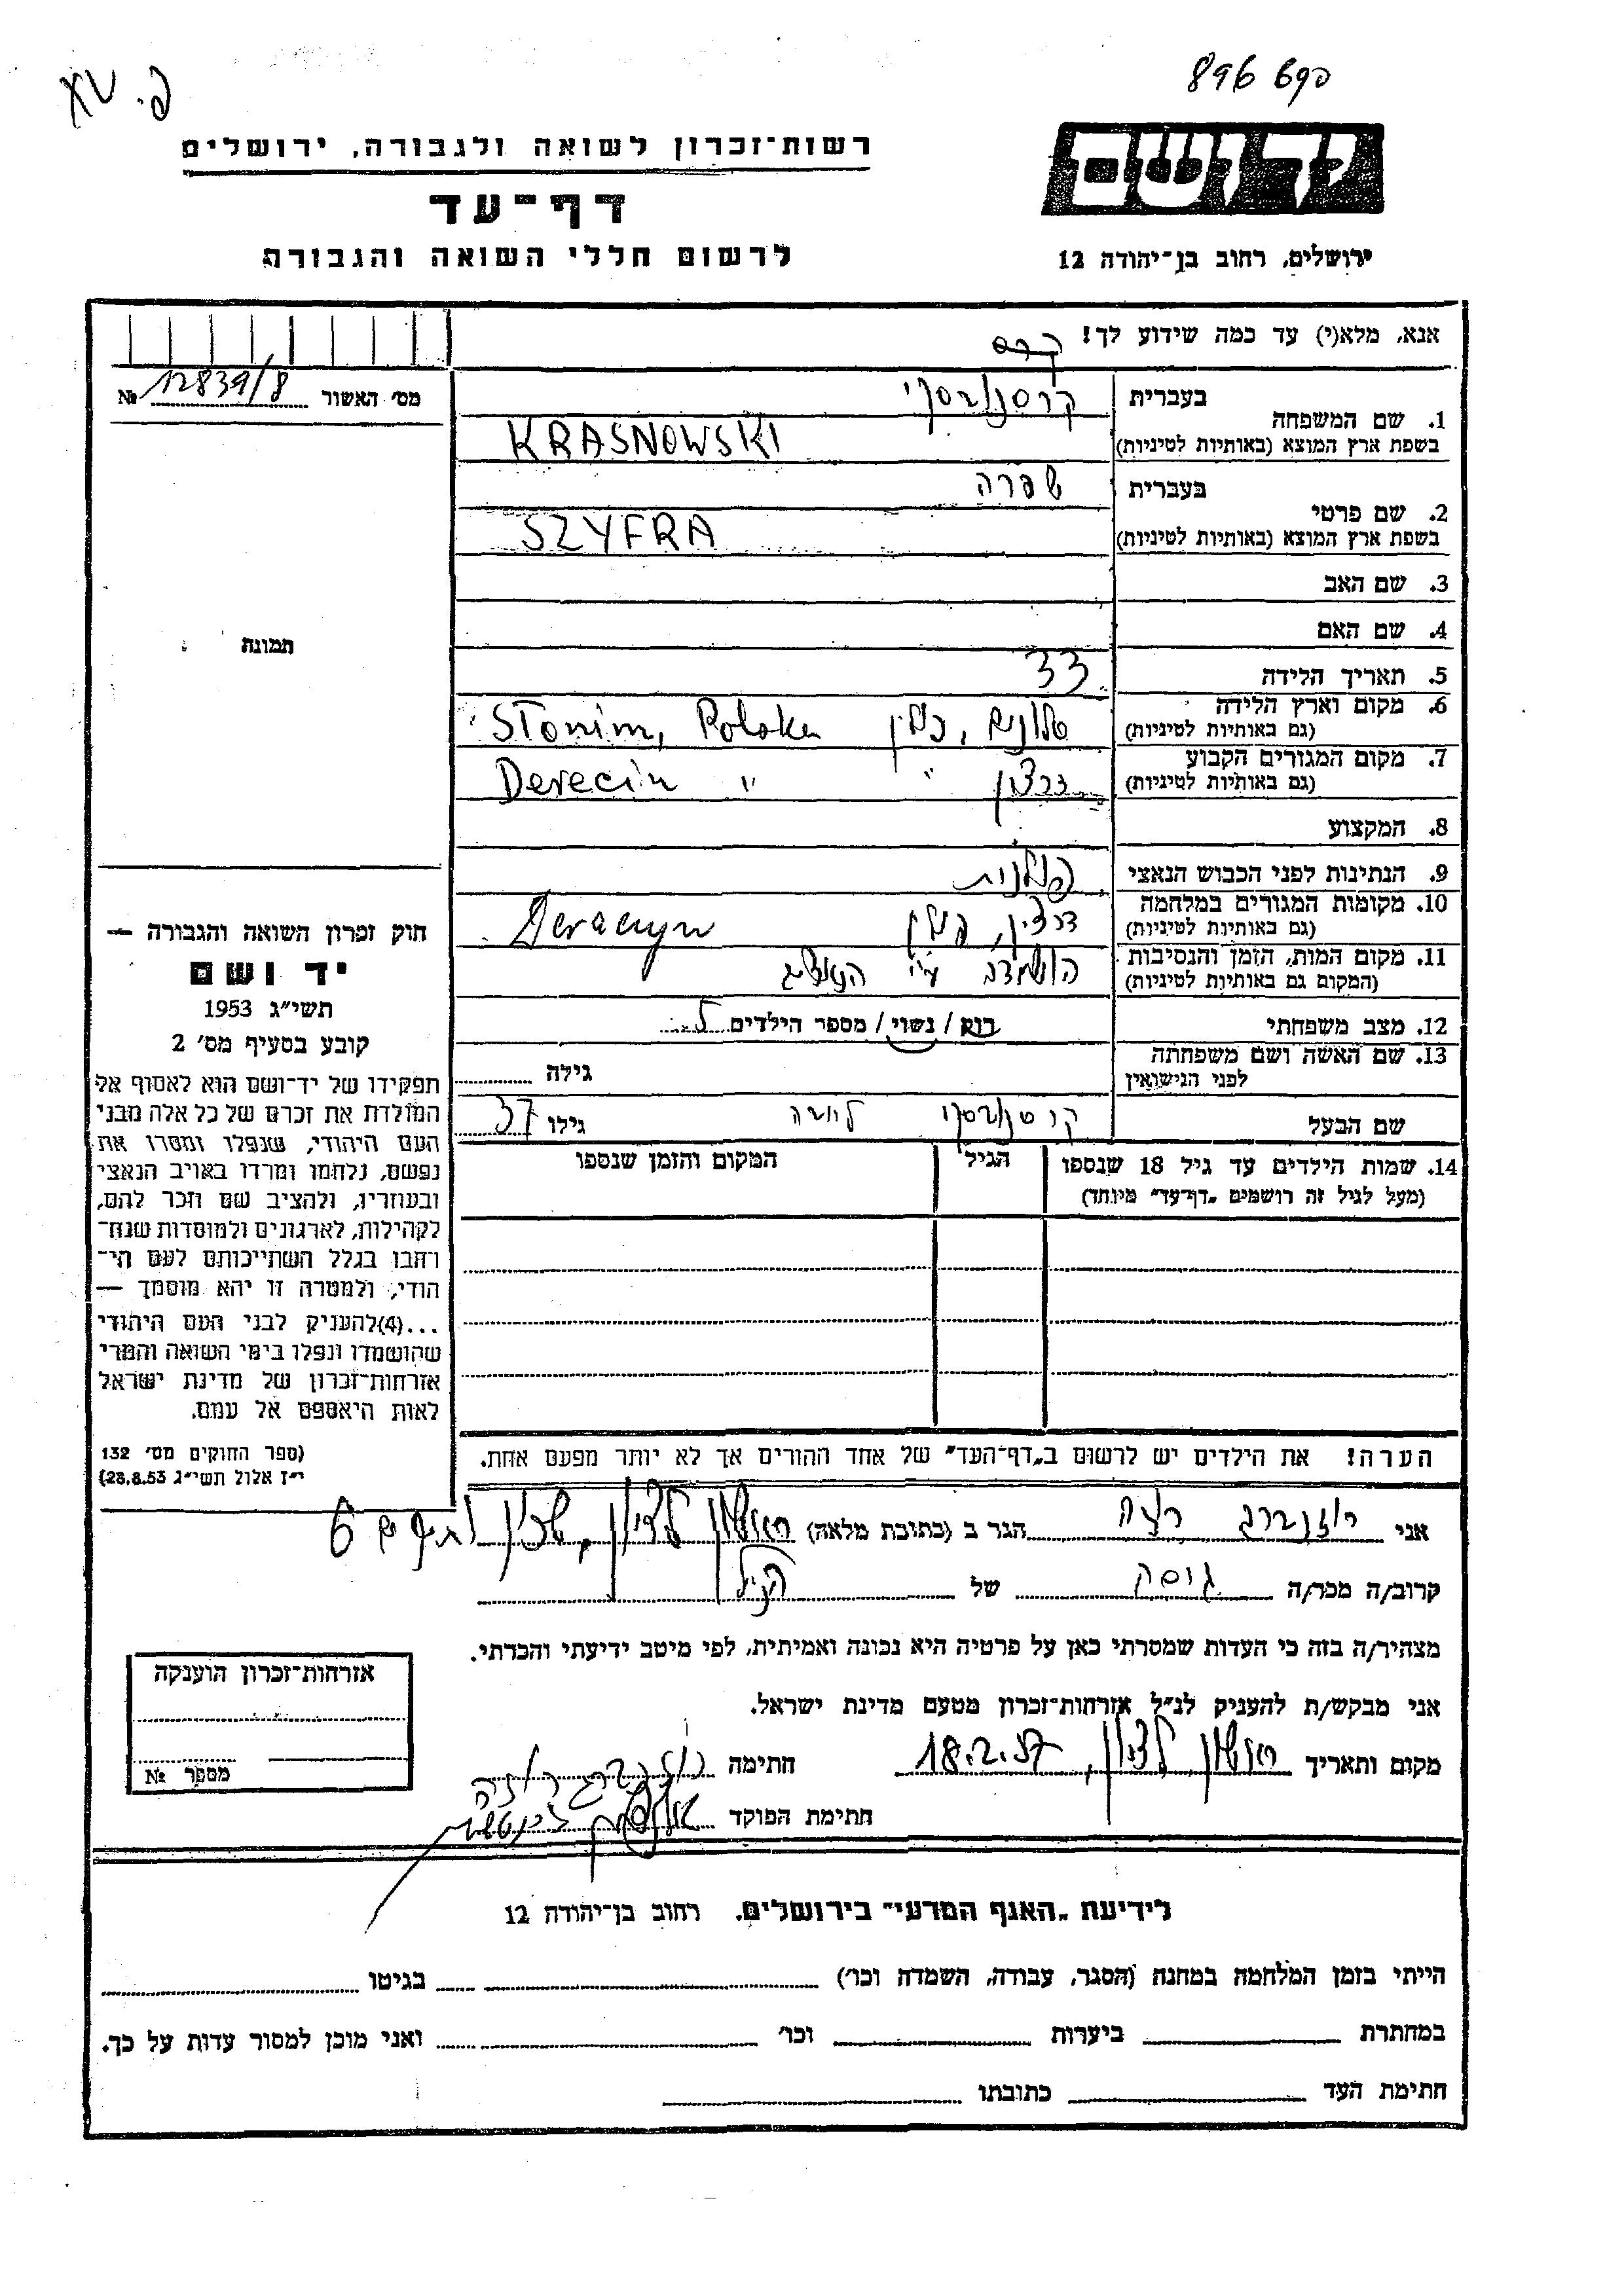 896 698
רשות־זכרון לשואה ולגבורה, ירושלים
יד ושם
דף־עד
לרשום חללי השואה והגבורה
ירושלים, רחוב בן־יהודה 12
אנא, מלא(י) עד כמה שידוע לך!
מס׳ האשור 12839/8 №
בעברית קרסנובסקי
1. שם המשפחה
בשפת ארץ המוצא (באותיות לטיניות) KRASNOWSKI
בעברית שפרה
2. שם פרטי
בשפת ארץ המוצא (באותיות לטיניות) SZYFRA
3. שם האב
4. שם האם
תמונה
5. תאריך הלידה 33
6. מקום וארץ הלידה
(גם באותיות לטיניות) סלונים, פולין Słonim, Polska
7. מקום המגורים הקבוע
(גם באותיות לטיניות) דרצין " Derecin "
8. המקצוע
9. הנתינות לפני הכבוש הנאצי פולנית
10. מקומות המגורים במלחמה
(גם באותיות לטיניות) דרצין, פולין Deraczyn
11. מקום המות, הזמן והנסיבות
(המקום גם באותיות לטיניות) הושמדה ע"י הנאצים
12. מצב משפחתי רוק / נשוי / מספר הילדים
13. שם האשה ושם משפחתה
לפני הנישואין גילה
שם הבעל קרסנובסקי גילו 37
14. שמות הילדים עד גיל 18 שנספו הגיל המקום והזמן שנספו
(מעל לגיל זה רושמים „דף־עד” מיוחד)
חוק זכרון השואה והגבורה —
יד ושם
תשי״ג 1953
קובע בסעיף מס׳ 2
תפקידו של יד־ושם הוא לאסוף אל
המולדת את זכרם של כל אלה מבני
העם היהודי, שנפלו ומסרו את
נפשם, נלחמו ומרדו באויב הנאצי
ובעוזריו, ולהציב שם וזכר להם,
לקהילות, לארגונים ולמוסדות שנח־
רחבו בגלל השתייכותם לעם הי־
הודי, ולמטרה זו יהא מוסמך —
...(4)להעניק לבני העם היהודי
שהושמדו ונפלו בימי השואה והמרי
אזרחות־זכרון של מדינת ישראל
לאות היאספם אל עמם.
(ספר החוקים מס׳ 132
י״ז אלול תשי״ג 28.8.53)
הערה! את הילדים יש לרשום ב„דף־העד” של אחד ההורים אך לא יותר מפעם אחת.
אני רוזנברג הגר ב (כתובת מלאה) ראשון לציון, שכון ותיקים 6
קרוב/ה מכר/ה גיסה של הנ״ל
מצהיר/ה בזה כי העדות שמסרתי כאן על פרטיה היא נכונה ואמיתית, לפי מיטב ידיעתי והכרתי.
אני מבקש/ת להעניק לנ״ל אזרחות־זכרון מטעם מדינת ישראל.
מקום ותאריך ראשון לציון, 18.2.57 חתימה
חתימת הפוקד
אזרחות־זכרון הוענקה
מספר №
לידיעת „האגף המדעי” בירושלים. רחוב בן־יהודה 12
הייתי בזמן המלחמה במחנה (הסגר, עבודה, השמדה וכו׳) בגיטו
במחתרת ביערות וכו׳ ואני מוכן למסור עדות על כך.
חתימת העד כתובתו